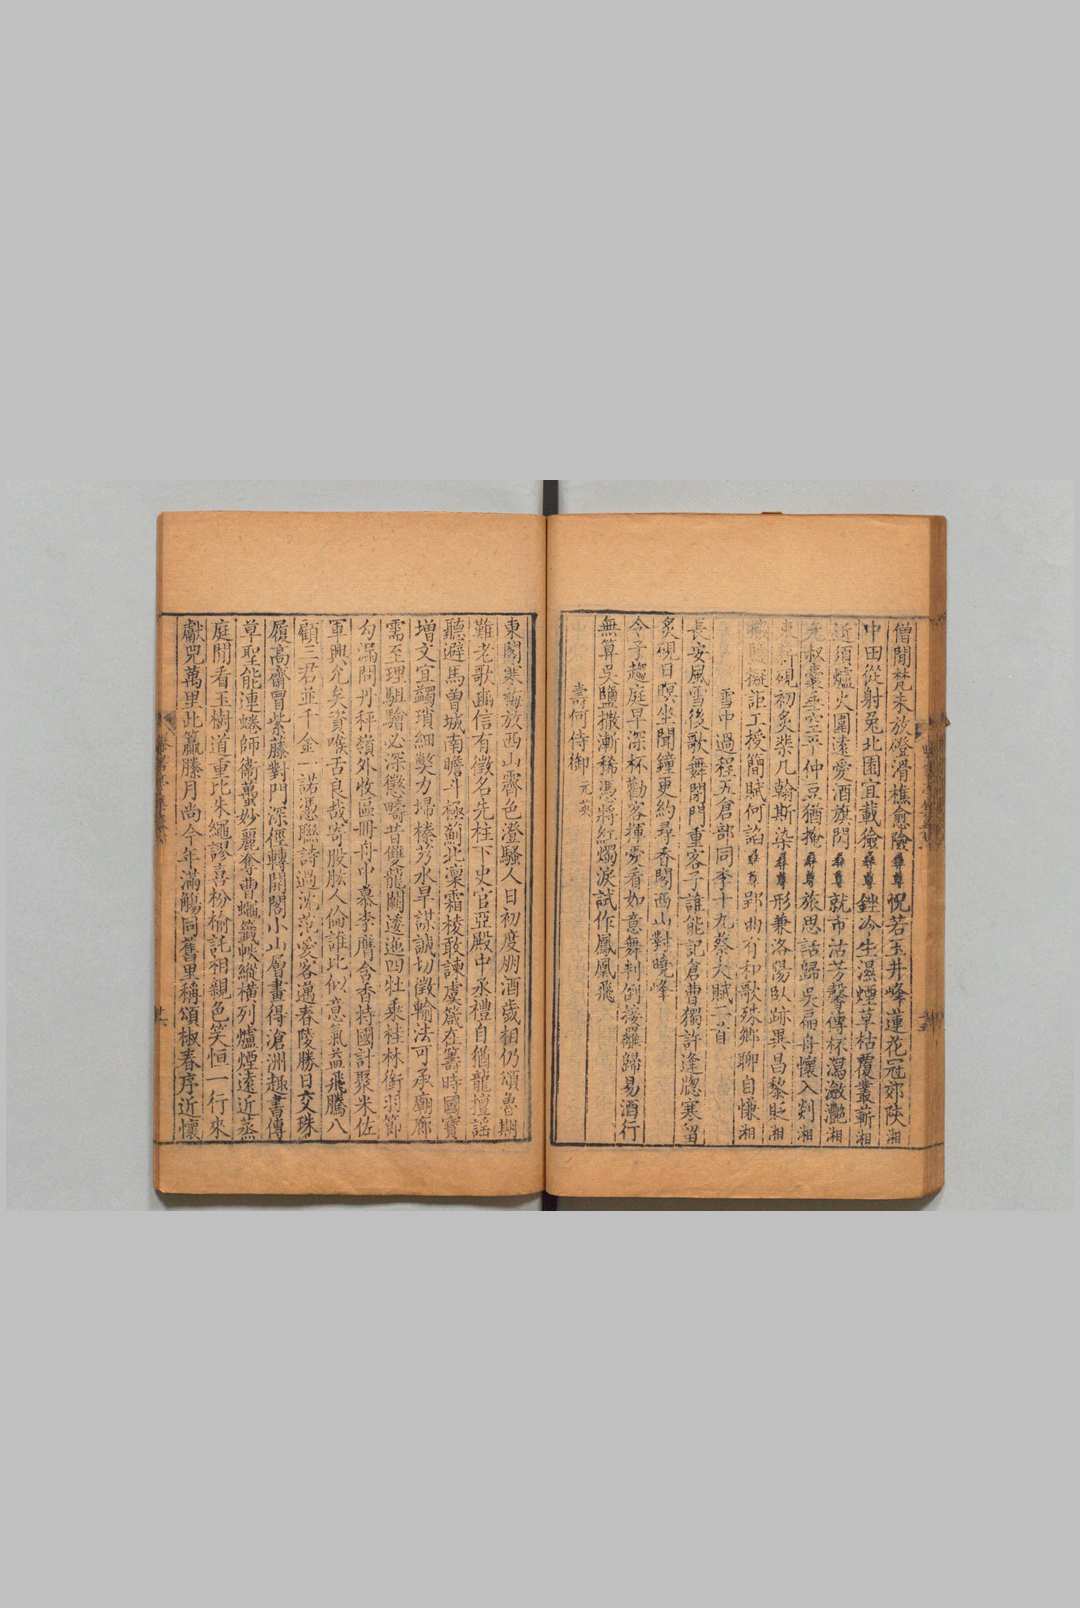 僧閒梵未放磴滑樵愈險尋尊怳若玉井峰蓮花冠郊陝湘
中田從射兔北園宜載獫尋尊銼冷生濕煙草枯覆叢蔪湘
近須爐火圍遠愛酒旗閃尋尊就市沽芳馨傳杯瀉瀲灎湘
無叔橐垂空平仲豆猶掩尋尊旅思話歸吳扁舟懷入剡湘
凍硯初炙柴几翰斯染尋尊形兼洛陽臥跡異昌黎貶湘
擬詎工授簡賦何諂尋尊郢曲有和歌殊鄉聊自慊湘
雪中過程五倉部同李十九蔡大賦二首
長安風雪後歌舞閉門重客子誰能記倉曹獨許逢牕寒留
炙硯日暝坐聞鐘更約尋香閣西山對曉峰
今子趨庭早深杯勸客揮旁看如意舞判倒接䍦歸易酒行
無算吳鹽撒漸稀憑將紅燭淚試作鳳凰飛
壽何侍御元英
東閣寒梅放西山霽色澄騷人日初度朋酒歲相仍頌魯期
難老歌豳信有徵名先柱下史官亞殿中丞禮自猶龍擅謠
聽避馬曾城南瞻斗極薊北凜霜稜敢諫虛箴在籌時國寶
增文宜蠲瑣細獘力埽榛艿水旱謀諴切徵輸法可承廟廊
需至理駔驓必深懲疇昔僊龍闕逶迤四牡乘桂林銜羽節
勾漏問丹秤嶺外收區冊舟中慕李膺含香持國計聚米佐
軍興允矣資喉舌良哉寄股肱人倫誰比似意氣益飛騰八
顧三君並千金一諾憑聯詩過沈范愛客邁春陵勝日文珠
履高齋冒紫藤對門深徑轉開閣小山層畫得滄洲趣書傳
草聖能連蜷師衛蠆妙麗奪曹蠅籤帙縱橫列爐煙遠近蒸
庭閒看玉樹道重比朱繩謬喜枌榆託相親色笑恒一行來
獻兕萬里此籝縢月尚今年滿觴同舊里稱頌椒春序近懷